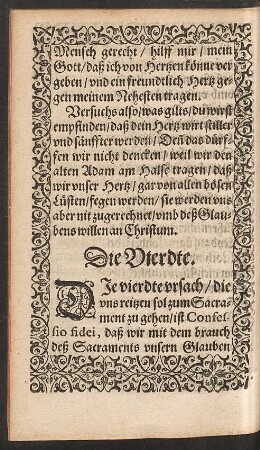 Mensch gerecht / hilff mir / mein
Gott / daß ich von Hertzen könne ver
geben / vnd ein freundtlich Hertz ge
gen meinem Nehesten tragen.
Versuchs also / was gilts / du wirst
empfinden / daß dein Hertz wirt stiller
vnd sänffter werden / Den das dürf-
fen wir nicht dencken / weil wir den
alten Adam am Halse tragen / daß
wir vnser Hertz / gar von allen bösen
Lüsten / fegen werden / sie werden vns
aber nit zugerechnet / vmb deß Glau-
bens willen an Christum.
Die Vierdte.
DJe vierdte vrsach / die
vns reitzen sol zum Sacra-
ment zu gehen / ist Confes-
sio fidei, daß wir mit dem brauch
deß Sacraments vnsern Glauben